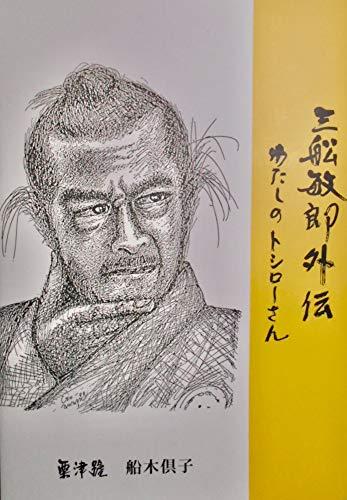 三船敏郎外伝
わたしのトシローさん
粟津號 船木倶子